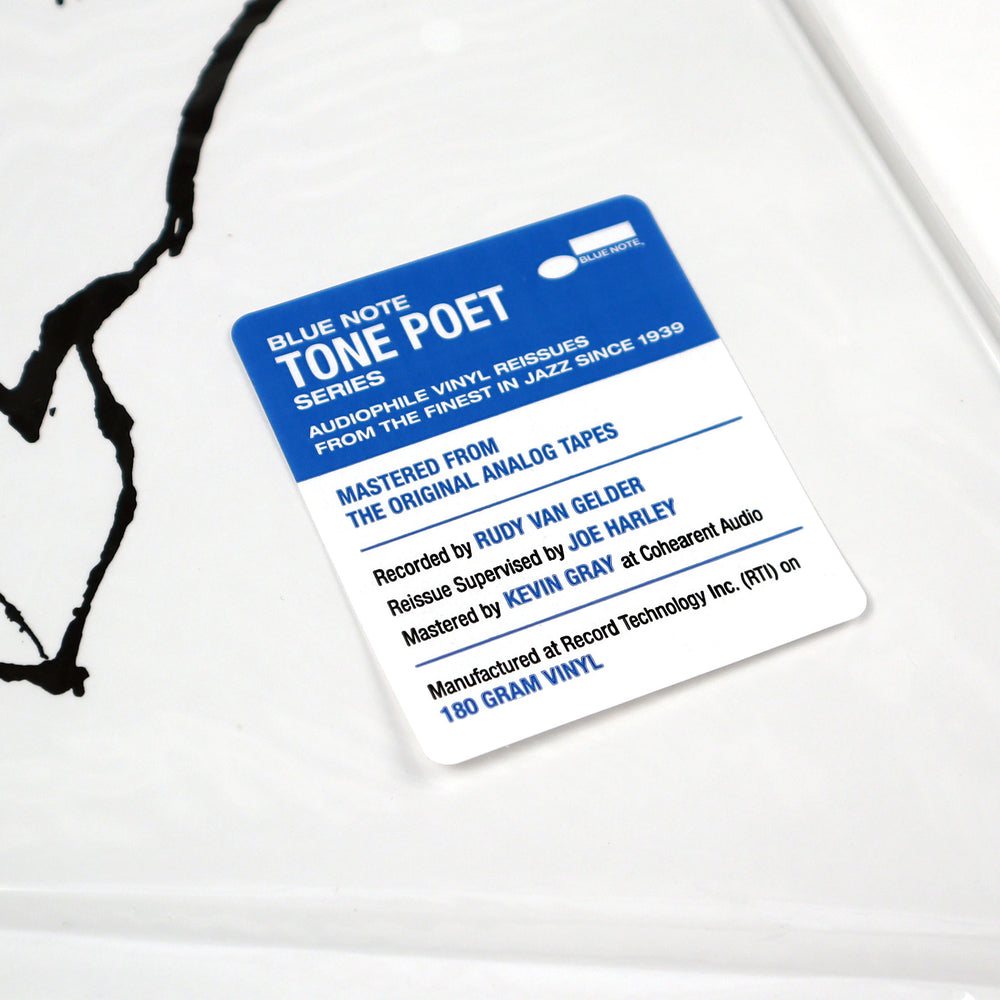 BLUE NOTE.
BLUE NOTE
TONE POET
SERIES
AUDIOPHILE VINYL REISSUES
FROM THE FINEST IN JAZZ SINCE 1939
MASTERED FROM
THE ORIGINAL ANALOG TAPES
Recorded by RUDY VAN GELDER
Reissue Supervised by JOE HARLEY
Mastered by KEVIN GRAY at Cohearent Audio
Manufactured at Record Technology Inc. (RTI) on
180 GRAM VINYL